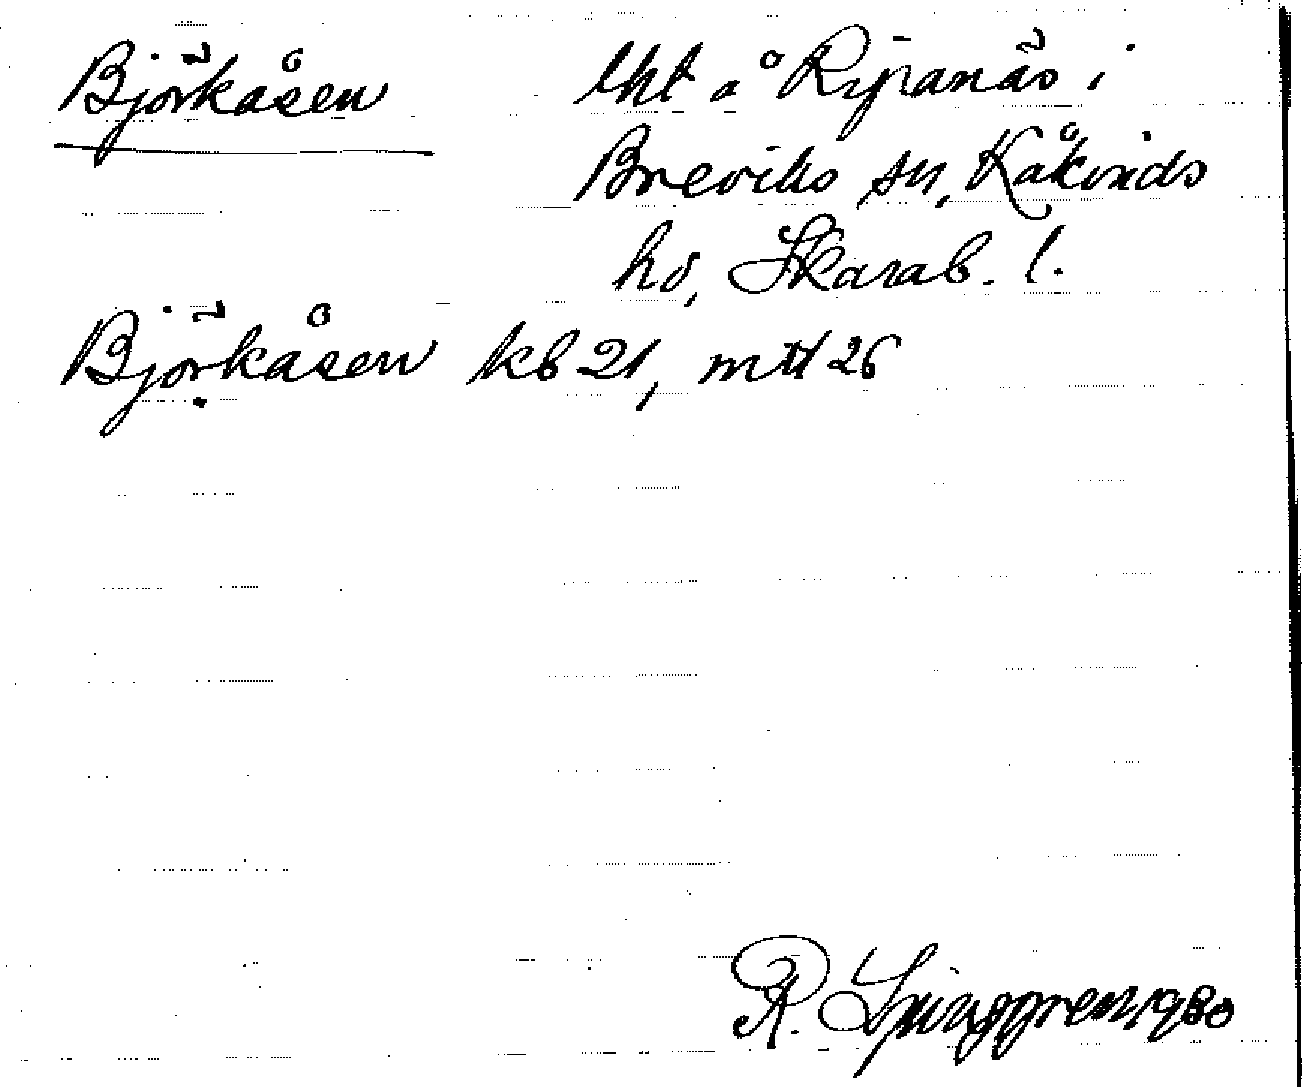 Björkåsen lht å Ripanäs i
Breviks sn, Kåkinds
hd, Skarab. l.
Björkåsen kb 21, mtl 26
R. Ljunggren 1930